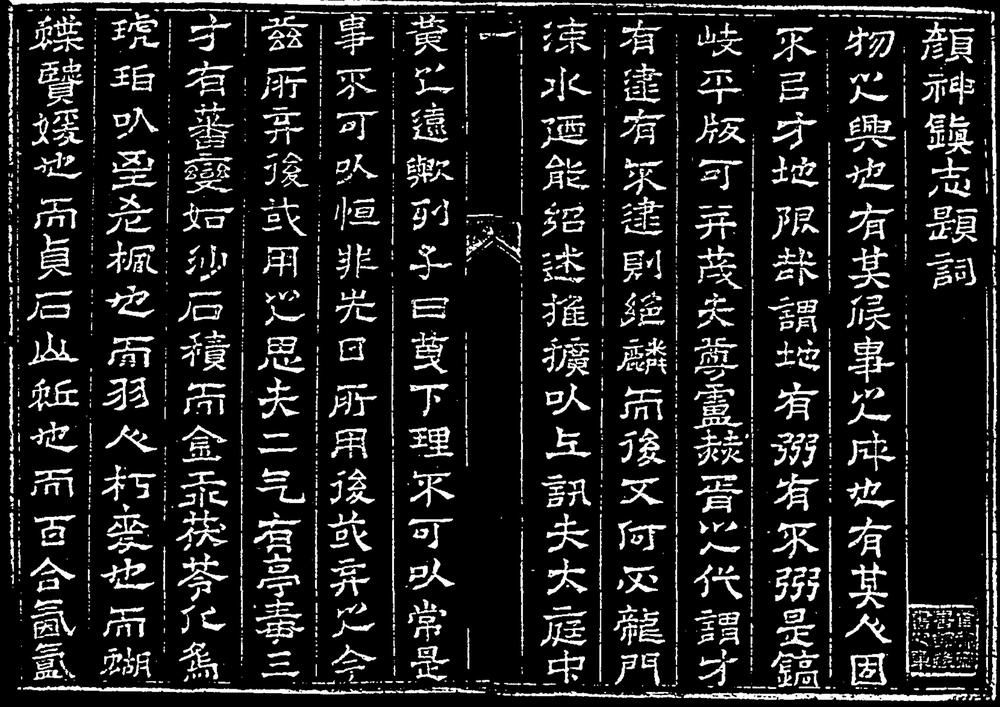 顏神鎮志題詞
物之興也有其候事之成也有其人固
不㠯才地限哉謂地有弼有不弼是鎬
岐平版可并茂夫尊盧赫胥之代謂才
有逮有不逮則絕麟而後又何必龍門
涑水迺能紹述摧擴㕥上訊夫大庭中
一
黃之遠歟列子曰莫下理不可㕥常是
事不可㕥恒非先日所用後或弃之今
茲所弃後或用之思夫二气有亭毒三
才有蕃變如沙石積而金汞茯苓化為
琥珀㕥至老楓也而羽人朽麥也而蝴
蝶賢媛也而貞石山蚯也而百合氤氳